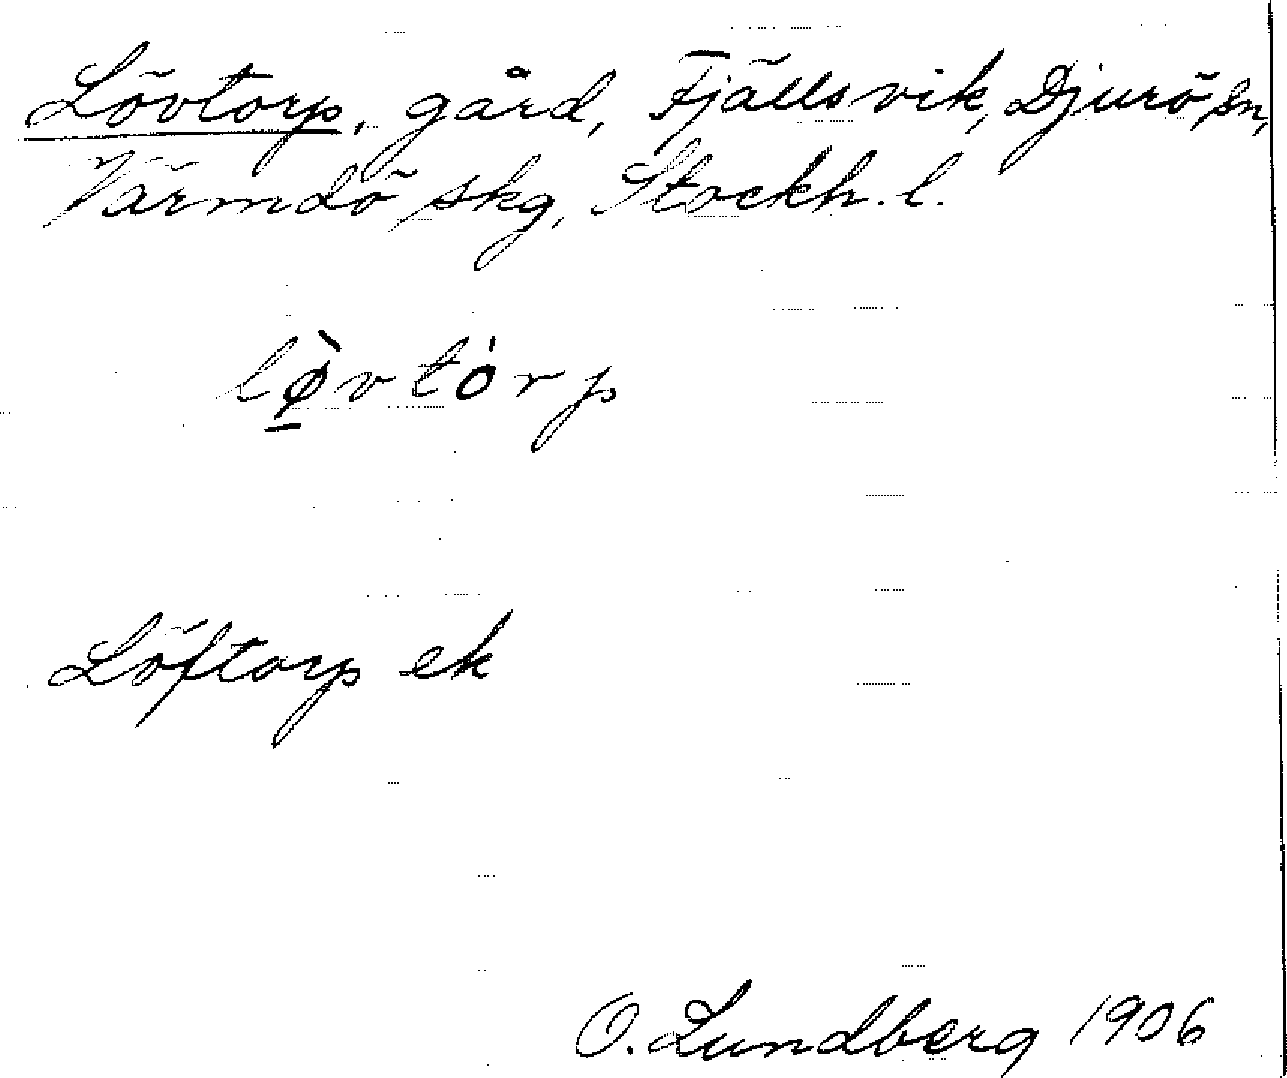 Lövtorp, gård, Fjällsvik, Djurö sn,
Värmdö skg, Stockh. l.
lø̀vtórp
Löftorp ek
O. Lundberg 1906